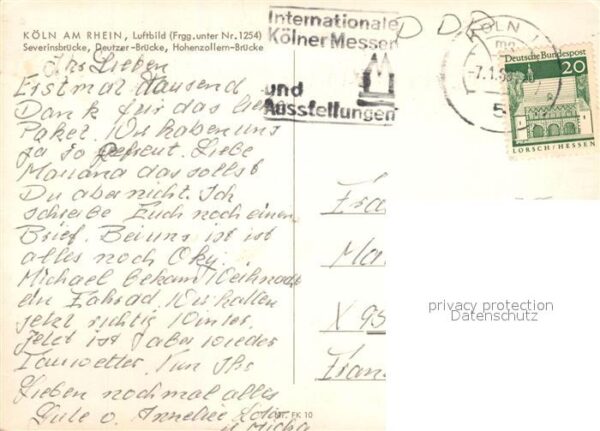 KÖLN AM RHEIN, Luftbild (Frgg. unter Nr. 1254)
Severinsbrücke, Deutzer-Brücke, Hohenzollern-Brücke
Internationale
Kölner Messen
und
Ausstellungen
DDR
KÖLN 1
-7.1.
5
Deutsche Bundespost
20
LORSCH/HESSEN
Ihr Lieben
Erstmal tausend
Dank für das
Paket. Wir haben uns
ja so gefreut. Liebe
Mariana das sollst
Du aber nicht. Ich
schreibe Euch noch einen
Brief. Bei uns ist ist
alles noch Oky.
Michael bekam Weihnacht
ein Fahrad. Wir hatten
jetzt richtig Winter.
Jetzt ist aber wieder
Tauwetter. Nun Ihr
Lieben nochmal alles
Gute v.
Fra
Ma
X 95
Fran
FK 10
privacy protection
Datenschutz